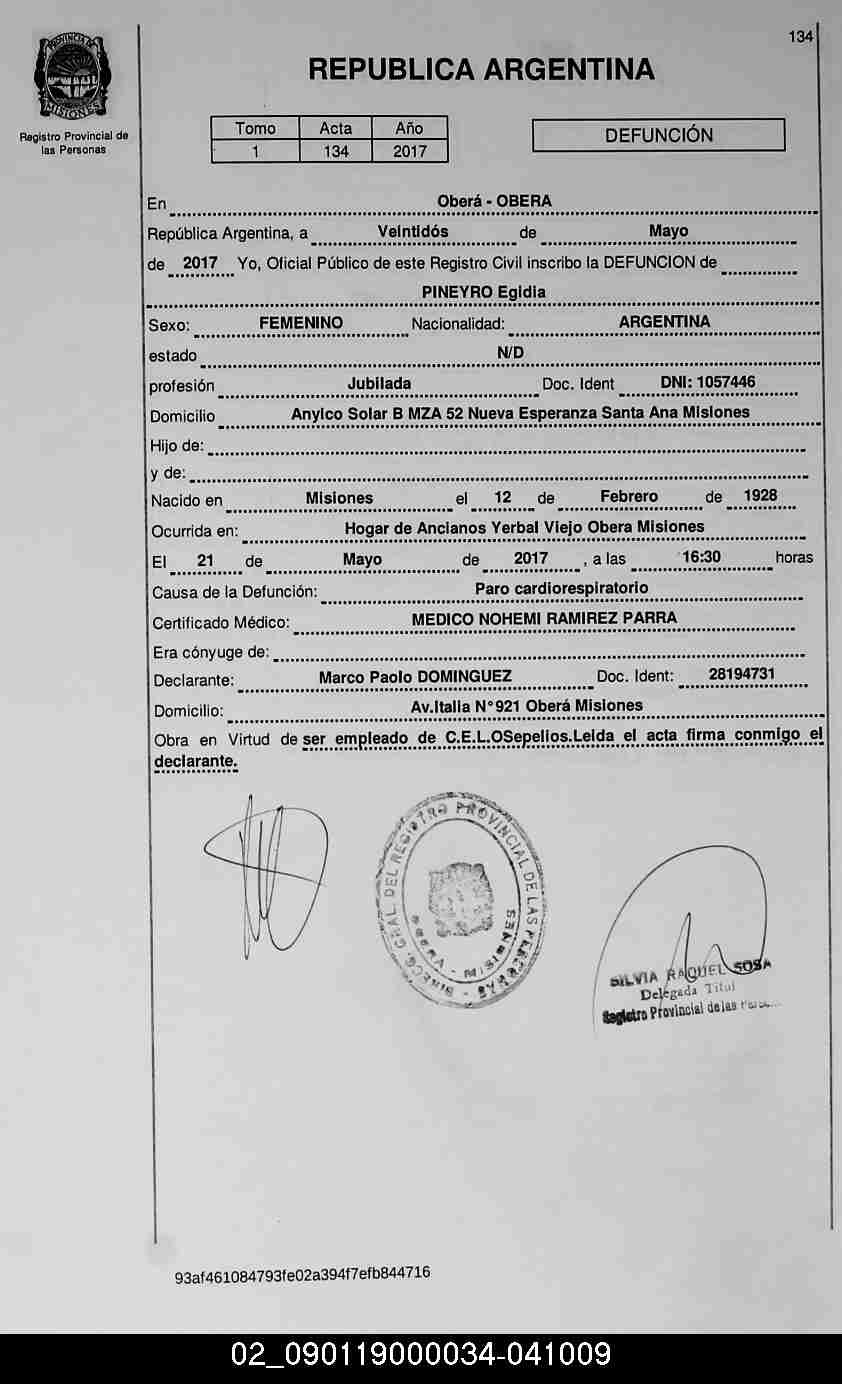 134
PROVINCIA DE
MISIONES
Registro Provincial de
las Personas
REPUBLICA ARGENTINA
Tomo Acta Año
1 134 2017
DEFUNCIÓN
En Oberá - OBERA
República Argentina, a Veintidós de Mayo
de 2017 Yo, Oficial Público de este Registro Civil inscribo la DEFUNCION de
PINEYRO Egidia
Sexo: FEMENINO Nacionalidad: ARGENTINA
estado N/D
profesión Jubilada Doc. Ident DNI: 1057446
Domicilio Anyico Solar B MZA 52 Nueva Esperanza Santa Ana Misiones
Hijo de:
y de:
Nacido en Misiones el 12 de Febrero de 1928
Ocurrida en: Hogar de Ancianos Yerbal Viejo Obera Misiones
El 21 de Mayo de 2017 , a las 16:30 horas
Causa de la Defunción: Paro cardiorespiratorio
Certificado Médico: MEDICO NOHEMI RAMIREZ PARRA
Era cónyuge de:
Declarante: Marco Paolo DOMINGUEZ Doc. Ident: 28194731
Domicilio: Av.Italia N°921 Oberá Misiones
Obra en Virtud de ser empleado de C.E.L.OSepelios.Leida el acta firma conmigo el
declarante.
GRAL. DEL REGISTRO PROVINCIAL DE LAS PERSONAS
OBERA - MISIONES
SILVIA RAQUEL SOSA
Delegada
Registro Provincial de las
93af461084793fe02a394f7efb844716
02_090119000034-041009